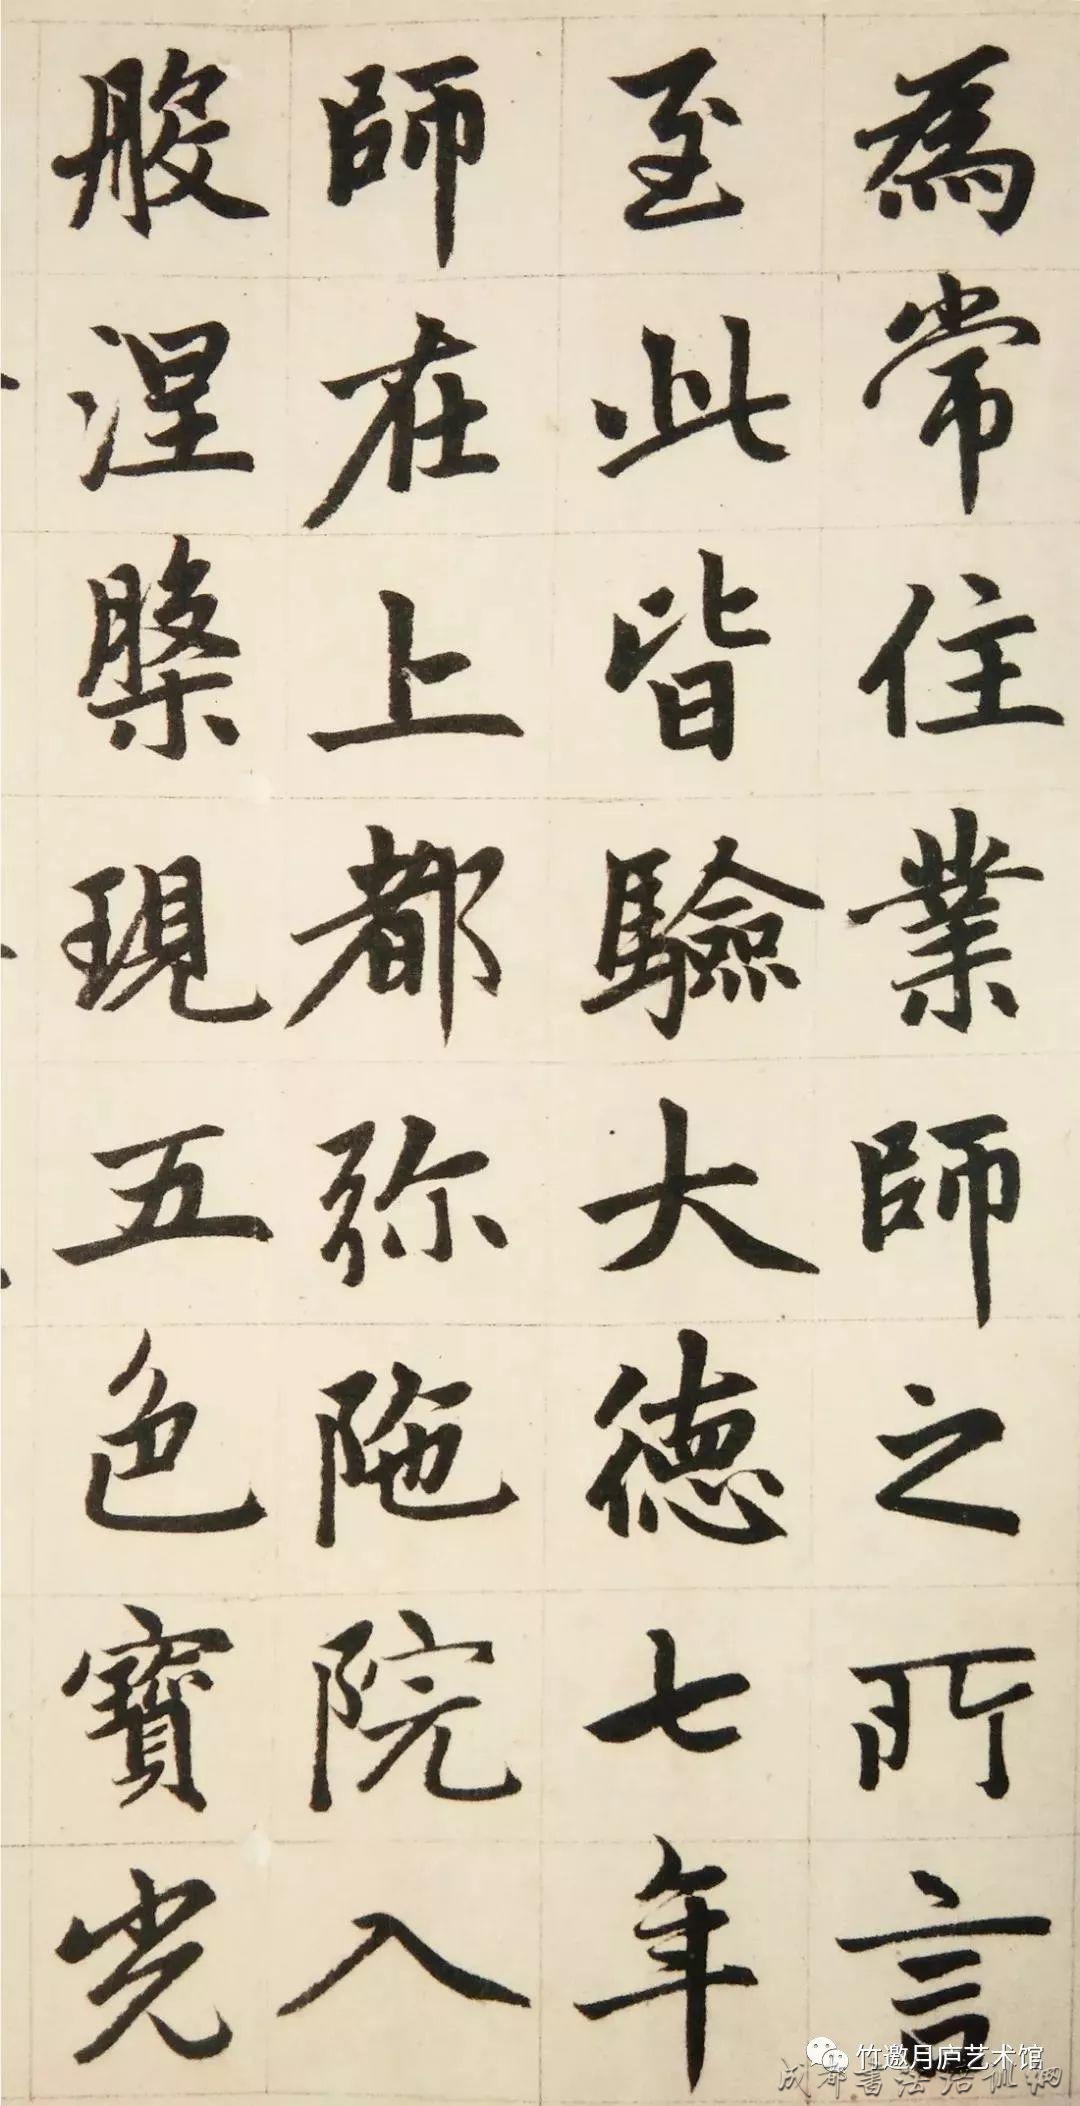 為常住業師之所言
至此皆驗大德七年
師在上都弥陁院入
般涅槃現五色寶光
竹邀月庐艺术馆
成都书法培训网